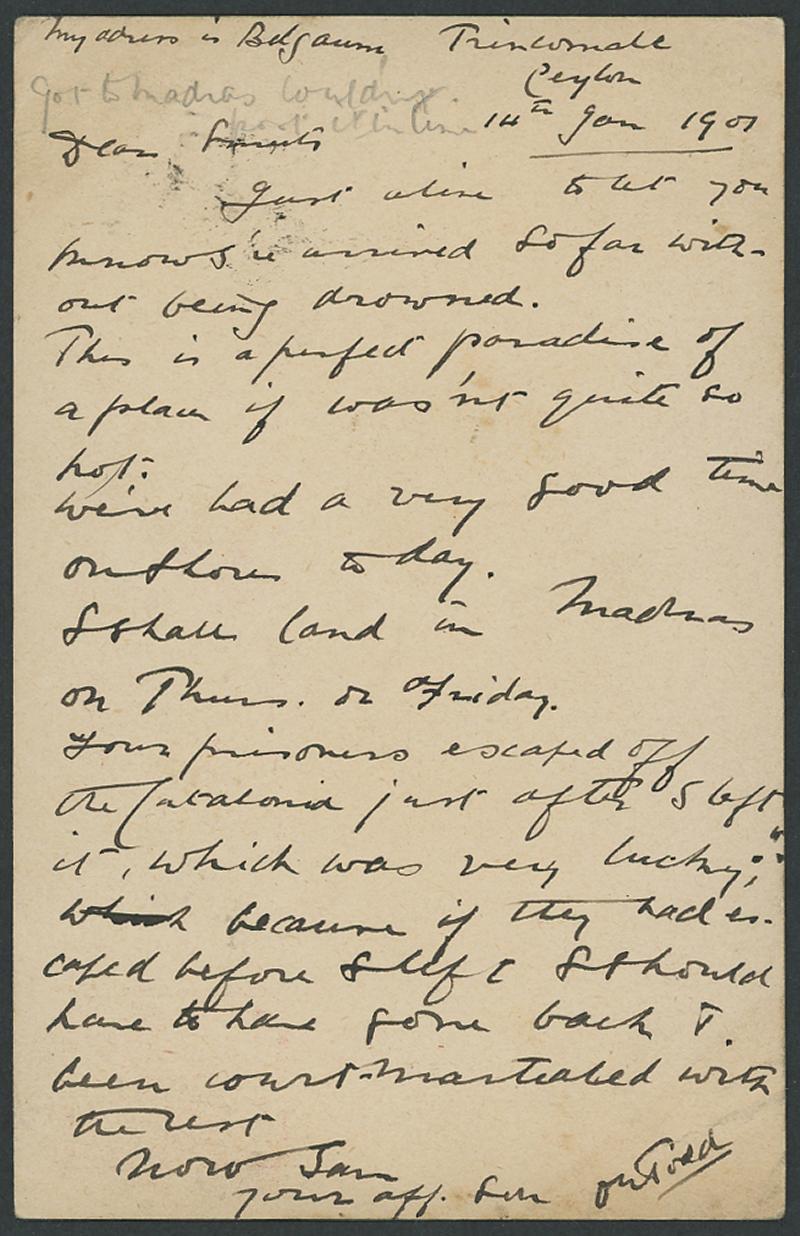 My adress is Belgaum Trincomale
Ceylon
Got to Madras couldn't
post it in time
14th Jan 1901
Dear
Just a line to let you
know I've arrived so far with-
out being drowned.
This is a perfect paradise of
a place if was'nt quite so
hot.
We've had a very good time
on shore to day.
I shall land in Madras
on Thurs. or Friday.
Four prisoners escaped off
the Catalonia just after I left
it, which was very lucky;
because if they had es-
caped before I left I should
have to have gone back &
been court-martialed with
the rest
Now I am
your aff. son Todd